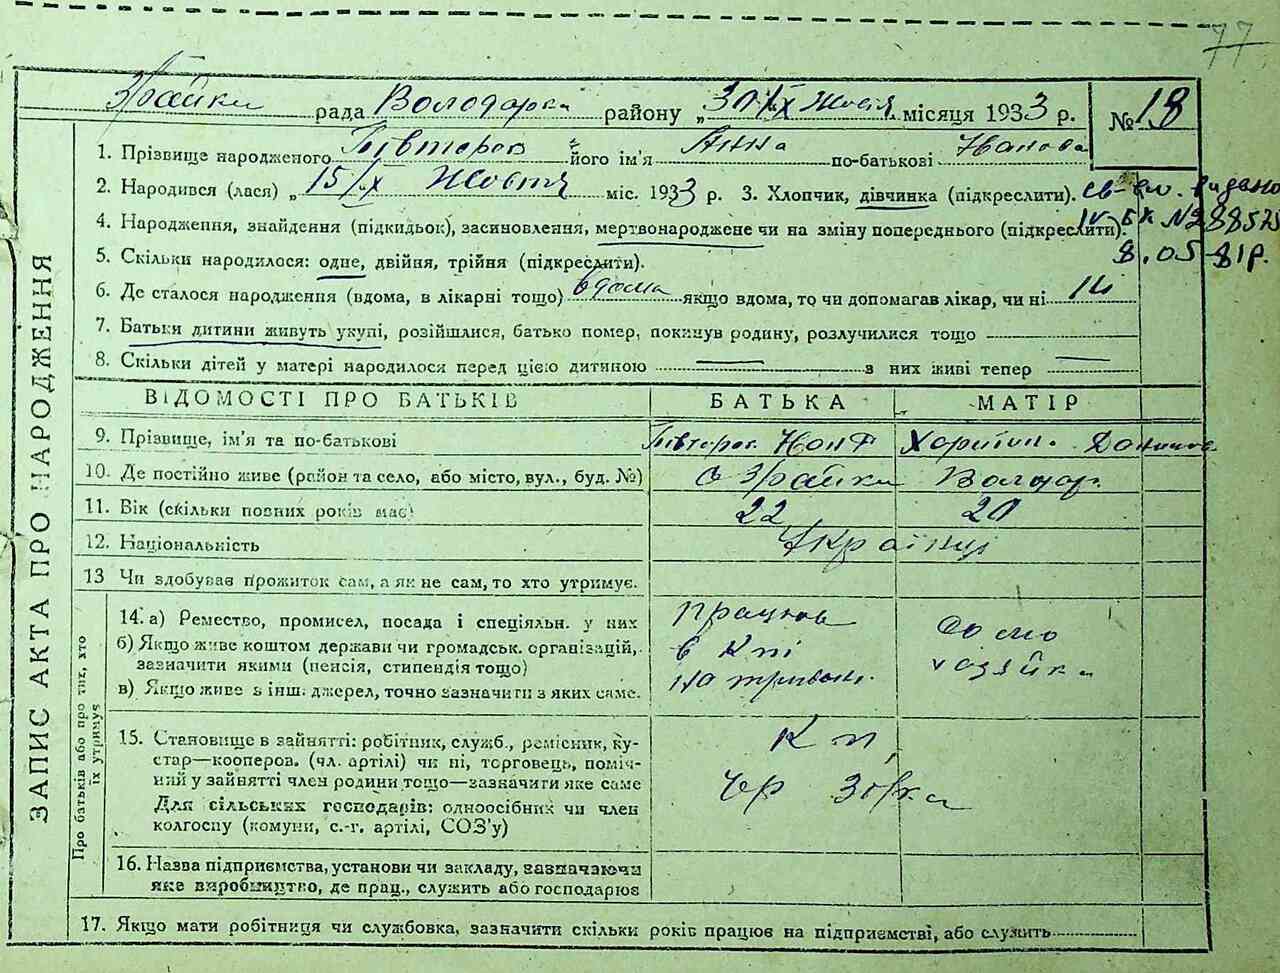 77
Зрайки рада Володарки району „30/IX Жовтя місяця 1933 р. № 18
1. Прізвище народженого Півторак його ім'я Анна по-батькові Іванова
2. Народився (лася) „15/IX Жовтя міс. 1933 р. 3. Хлопчик, дівчинка (підкреслити). св-во. видано
4. Народження, знайдення (підкидьок), засиновлення, мертвонароджене чи на зміну попереднього (підкреслити). IV-БК №288575
5. Скільки народилося: одне, двійня, трійня (підкреслити). 8.05-81р.
6. Де сталося народження (вдома, в лікарні тощо) вдома якщо вдома, то чи допомагав лікар, чи ні
7. Батьки дитини живуть укупі, розійшлися, батько помер, покинув родину, розлучилися тощо
8. Скільки дітей у матері народилося перед цією дитиною — з них живі тепер —
ЗАПИС АКТА ПРО НАРОДЖЕННЯ
ВІДОМОСТІ ПРО БАТЬКІВ БАТЬКА МАТІР
9. Прізвище, ім'я та по-батькові Півторак
10. Де постійно живе (район та село, або місто, вул., буд. №) с Зрайки Володар.
11. Вік (скільки повних років має) 22 20
12. Національність Українці
13 Чи здобував прожиток сам, а як не сам, то хто утримує.
Про батьків або про тих, хто
їх утримує
14. а) Ремество, промисел, посада і спеціяльн. у них працював
б) Якщо живе коштом держави чи громадськ. організацій, в Кпі домо
зазначити якими (пенсія, стипендія тощо) хазяйка
в) Якщо живе з інш. джерел, точно зазначити з яких саме. на
15. Становище в зайнятті: робітник, служб., ремісник, ку- К п,
стар—кооперов. (чл. артілі) чи ні, торговець, поміч-
ний у зайнятті член родини тощо—зазначити яке саме чр
Для сільських господарів: одноосібник чи член
колгоспу (комуни, с.-г. артілі, СОЗ'у)
16. Назва підприємства, установи чи закладу, зазначаючи
яке виробництво, де прац., служить або господарює
17. Якщо мати робітниця чи службовка, зазначити скільки років працює на підприємстві, або служить